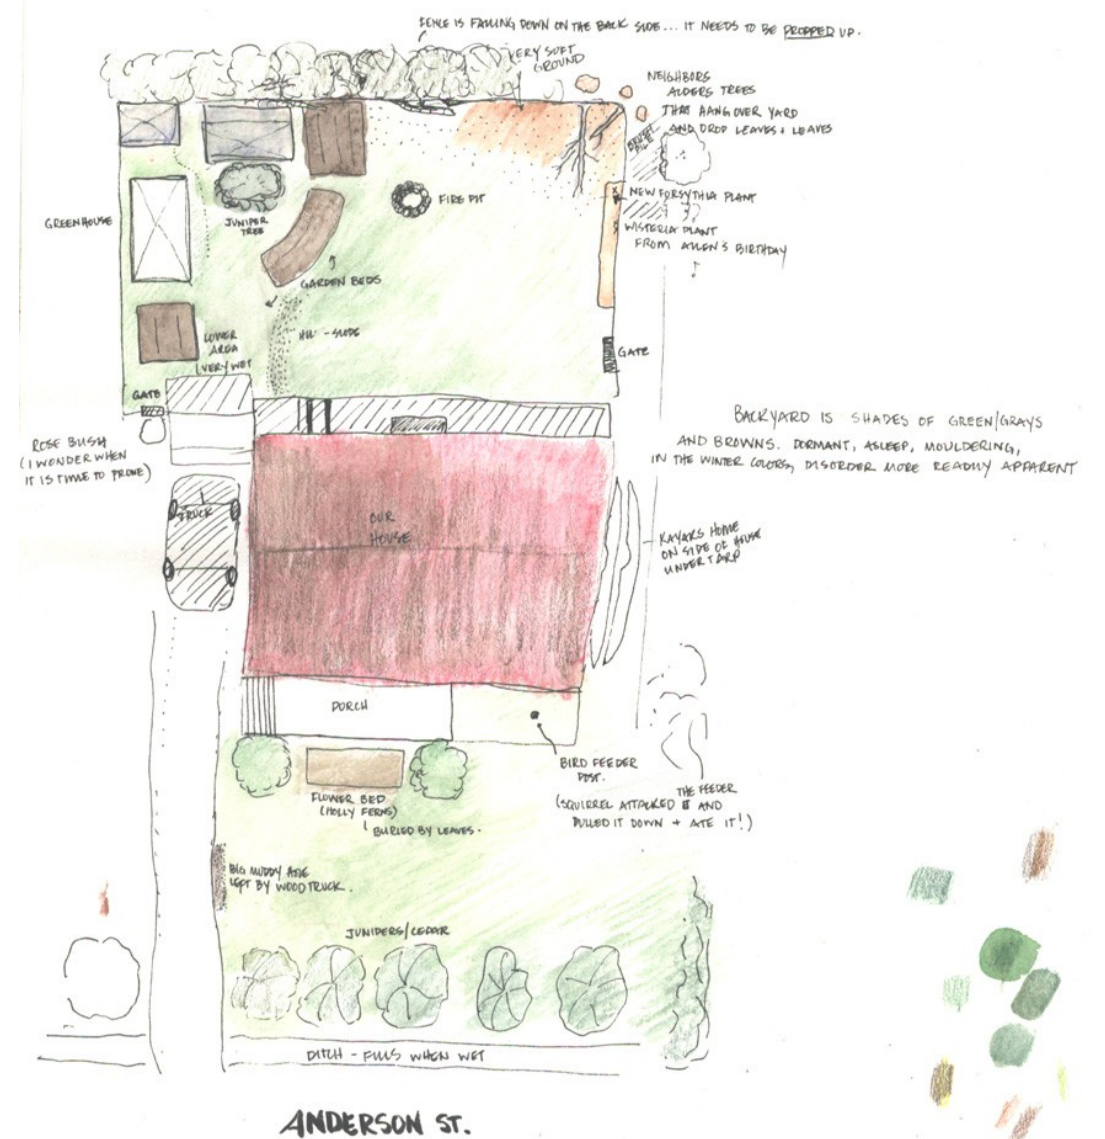 FENCE IS FALLING DOWN ON THE BACK SIDE... IT NEEDS TO BE PROPPED UP.
VERY SOFT
GROUND
NEIGHBORS
ALDERS TREES
THAT HANG OVER YARD
AND DROP LEAVES + LEAVES
BRUSH
PILE
NEW FORSYTHIA PLANT
WISTERIA PLANT
FROM 'S BIRTHDAY
GREENHOUSE
JUNIPER
TREE
FIRE PIT
GARDEN BEDS
HILL - SLOPE
LOWER
AREA
VERY WET
GATE
GATE
ROSE BUSH
(I WONDER WHEN
IT IS TIME TO PRUNE)
BACKYARD IS SHADES OF GREEN/GRAYS
AND BROWNS. DORMANT, ASLEEP, MOULDERING,
IN THE WINTER COLORS, DISORDER MORE READILY APPARENT
TRUCK
OUR
HOUSE
KAYAKS HOME
ON SIDE OF HOUSE
UNDER TARP
PORCH
BIRD FEEDER
POST.
(SQUIRREL ATTACKED THE FEEDER AND
PULLED IT DOWN + ATE IT!)
FLOWER BED
(HOLLY FERNS)
BURIED BY LEAVES.
BIG MUDDY
LEFT BY WOOD TRUCK.
JUNIPERS/CEDAR
DITCH - FILLS WHEN WET
ANDERSON ST.